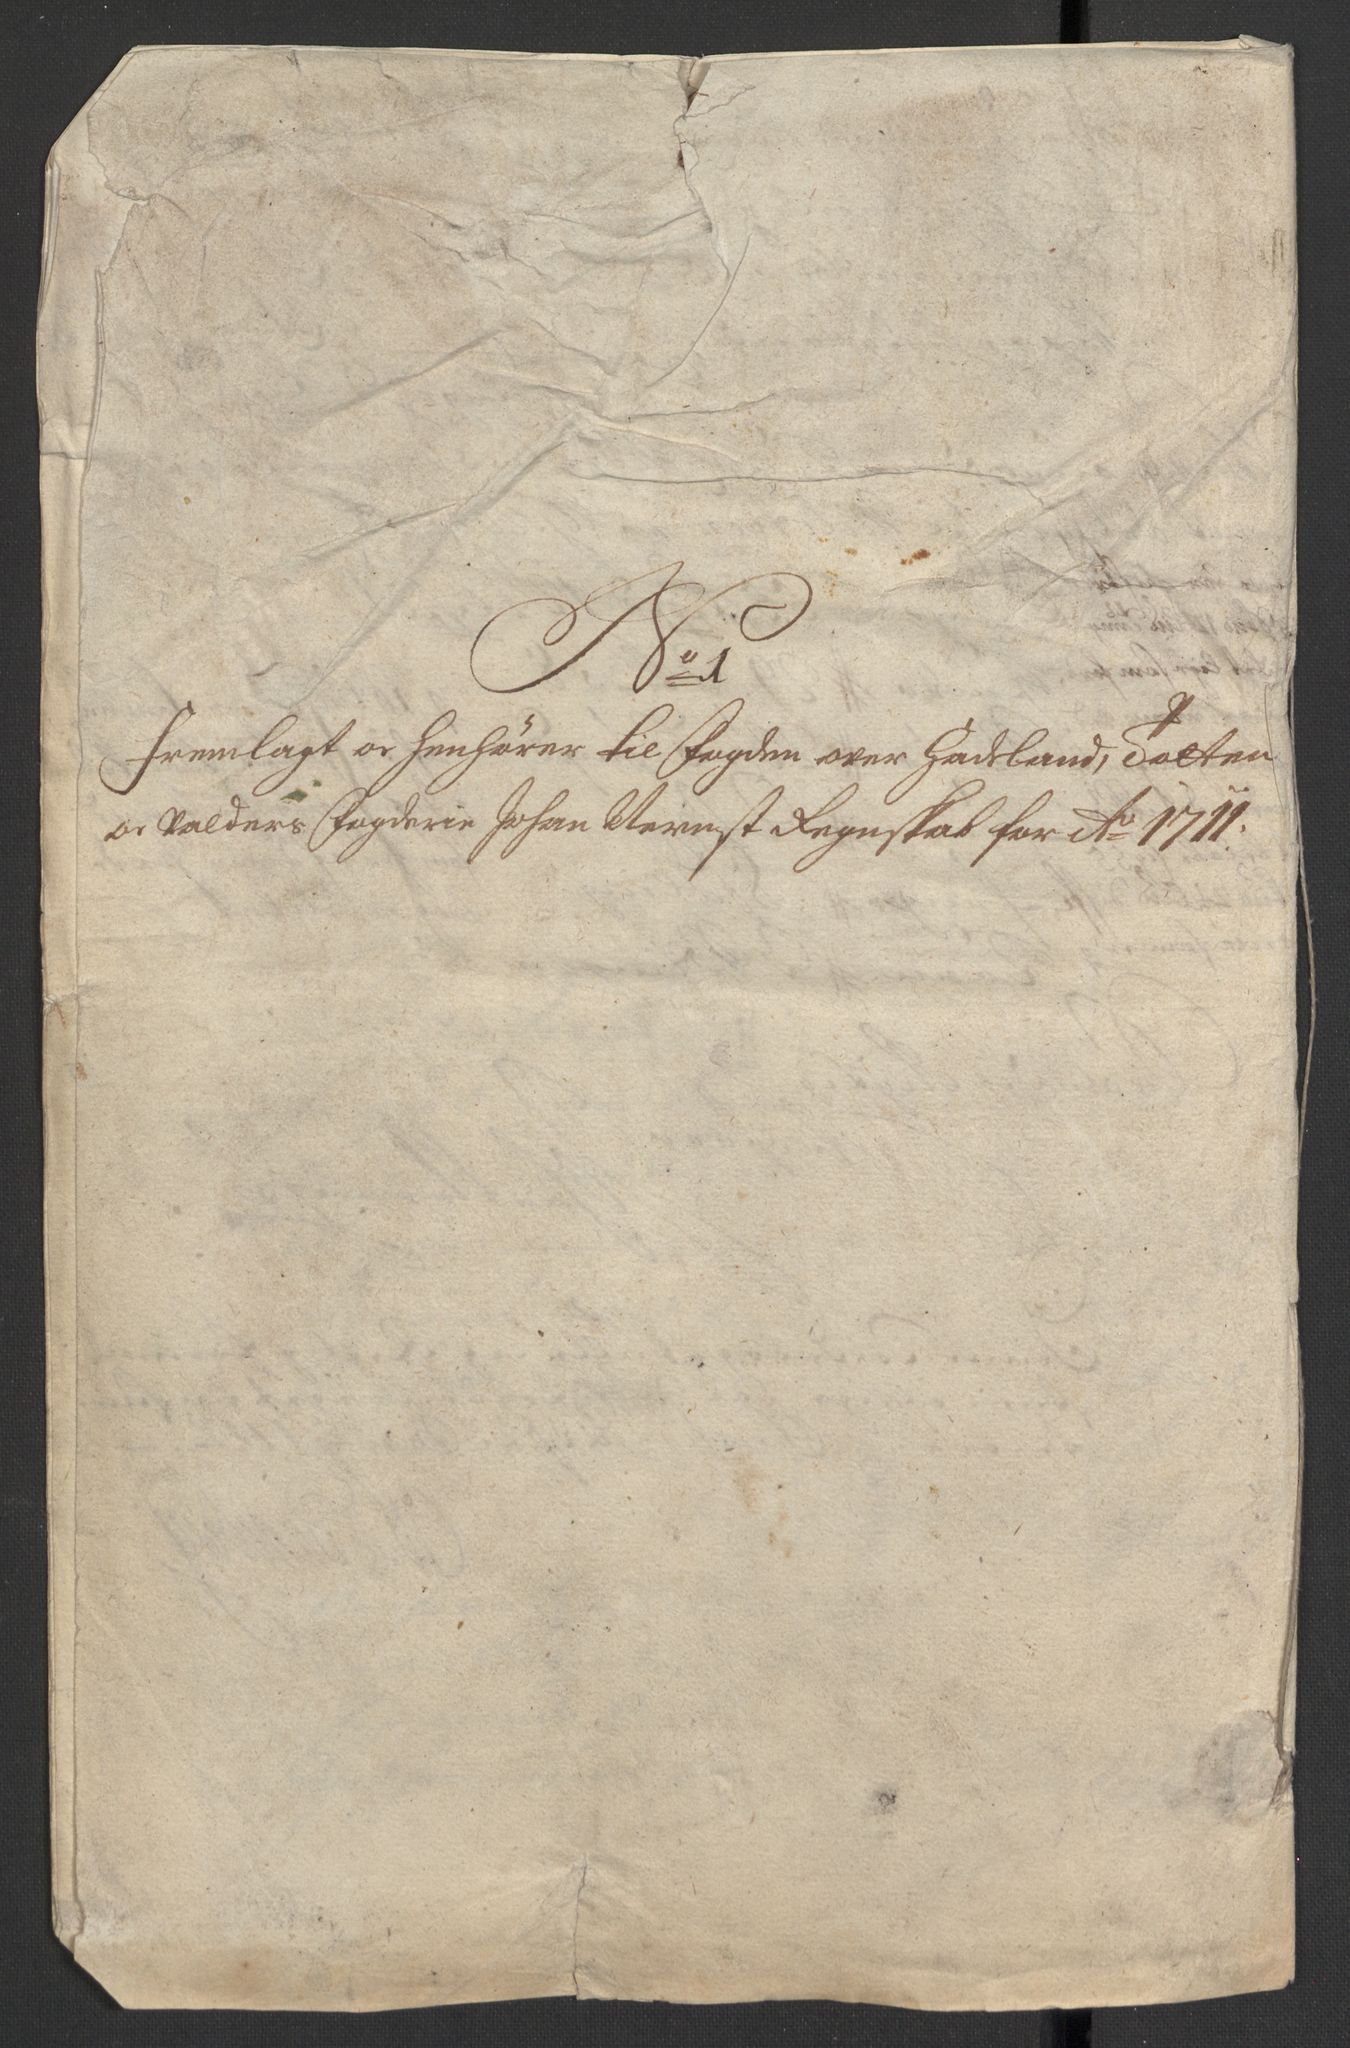 No 1
Fremlagt oc henhörer til Fogden over Hadeland, Totten
oc Valders Fogderie Johan Vernst Regnskab for Ao 1711.